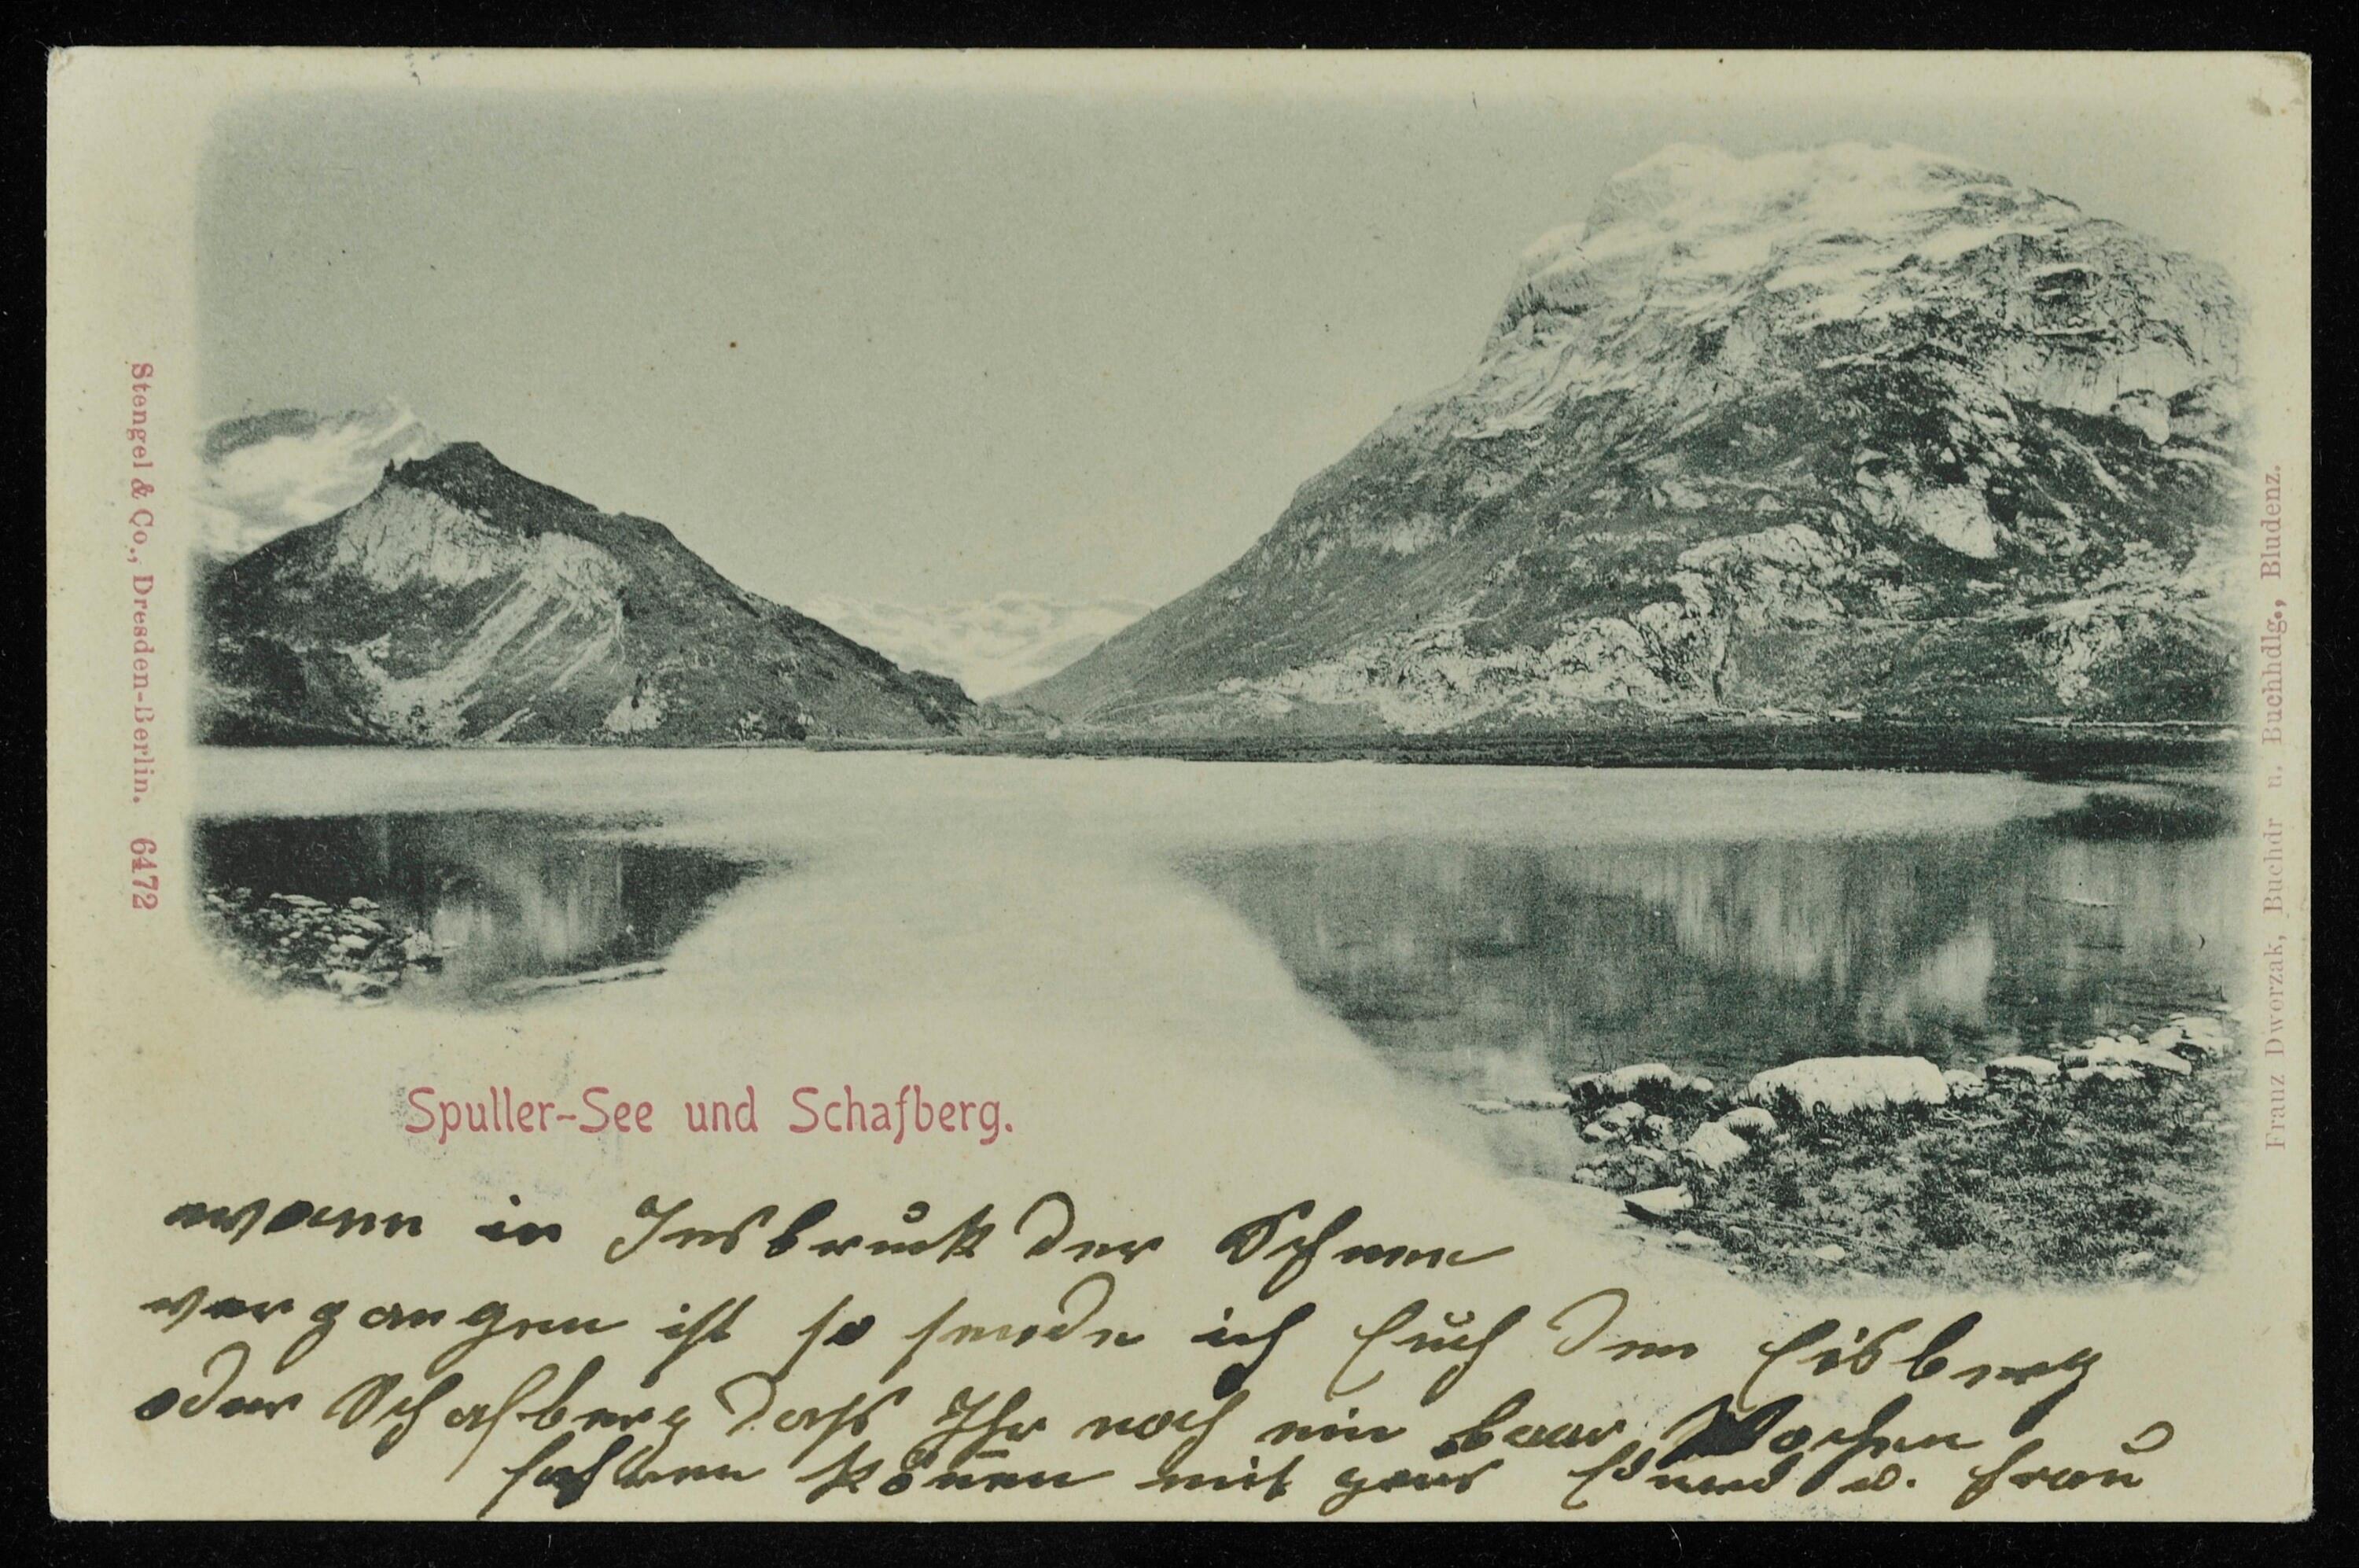 Stengel & Co., Dresden-Berlin. 6472
Franz Dworzak, Buchdr u. Buchhdlg., Bludenz.
Spuller-See und Schafberg.
wann in Insbruck der Schnee
vergangen ist so sende ich Euch den Eisberg
oder Schafberg dass Ihr noch ein baar Wochen
fahren könen mit Edmund u. Frau